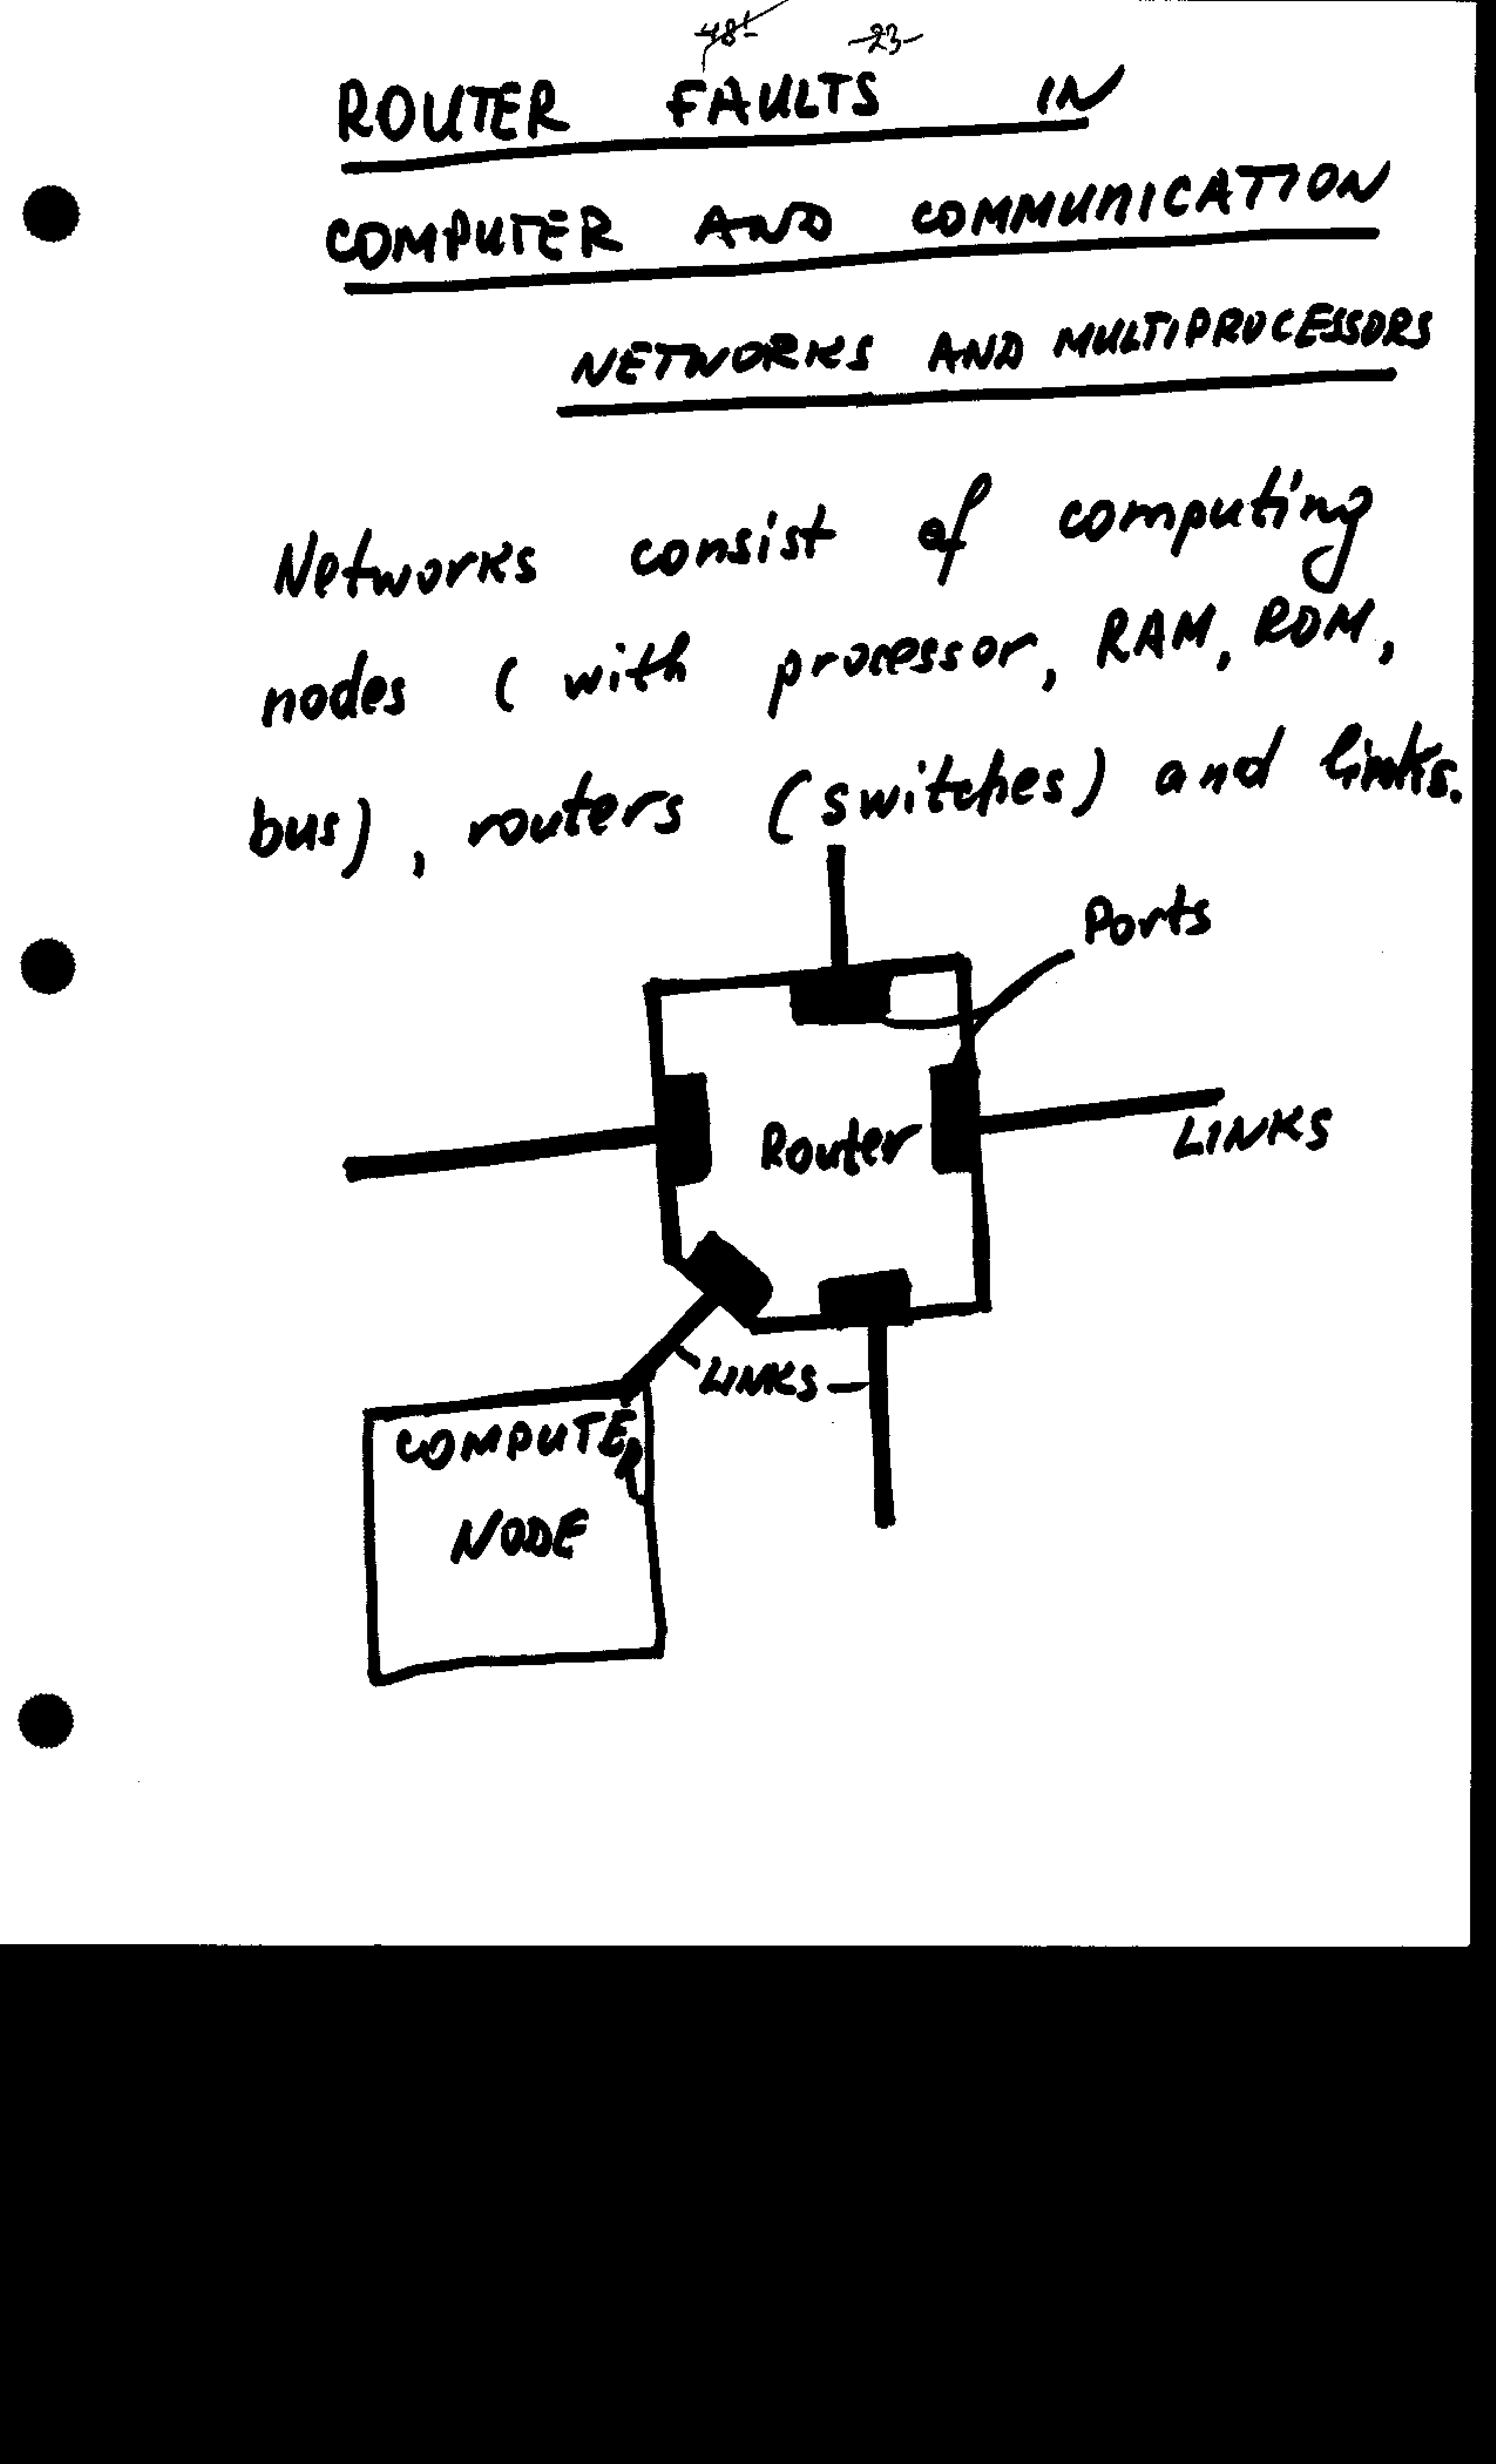 -48- -23-
ROUTER FAULTS IN
COMPUTER AND COMMUNICATION
NETWORKS AND MULTIPROCESSORS
Networks consist of computing
nodes (with processor, RAM, ROM,
bus), routers (switches) and links.
Ports
Router
LINKS
LINKS
COMPUTER
NODE